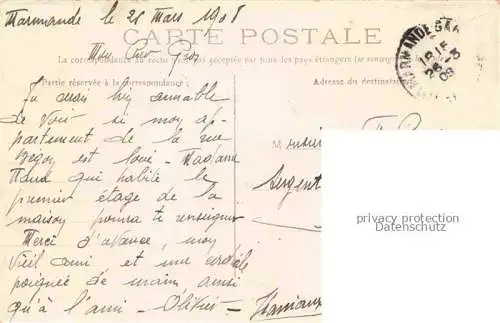 Marmande le 26 Mars 1908
CARTE POSTALE
Mon
La correspondance au recto n'est pas acceptée par tous les pays étrangers (se
Partie réservée à la correspondance
Adresse du destinataire
MARMANDE
26 - 3
08
Tu serais bien aimable
de voir si mon ap-
partement de la rue
est loué - Madame
qui habite le
premier étage de la
maison pourra te renseigner
Merci d'avance, mon
vieil ami et une cordiale
poignée de main ainsi
qu'à l'ami - Olivier -
M
privacy protection
Datenschutz